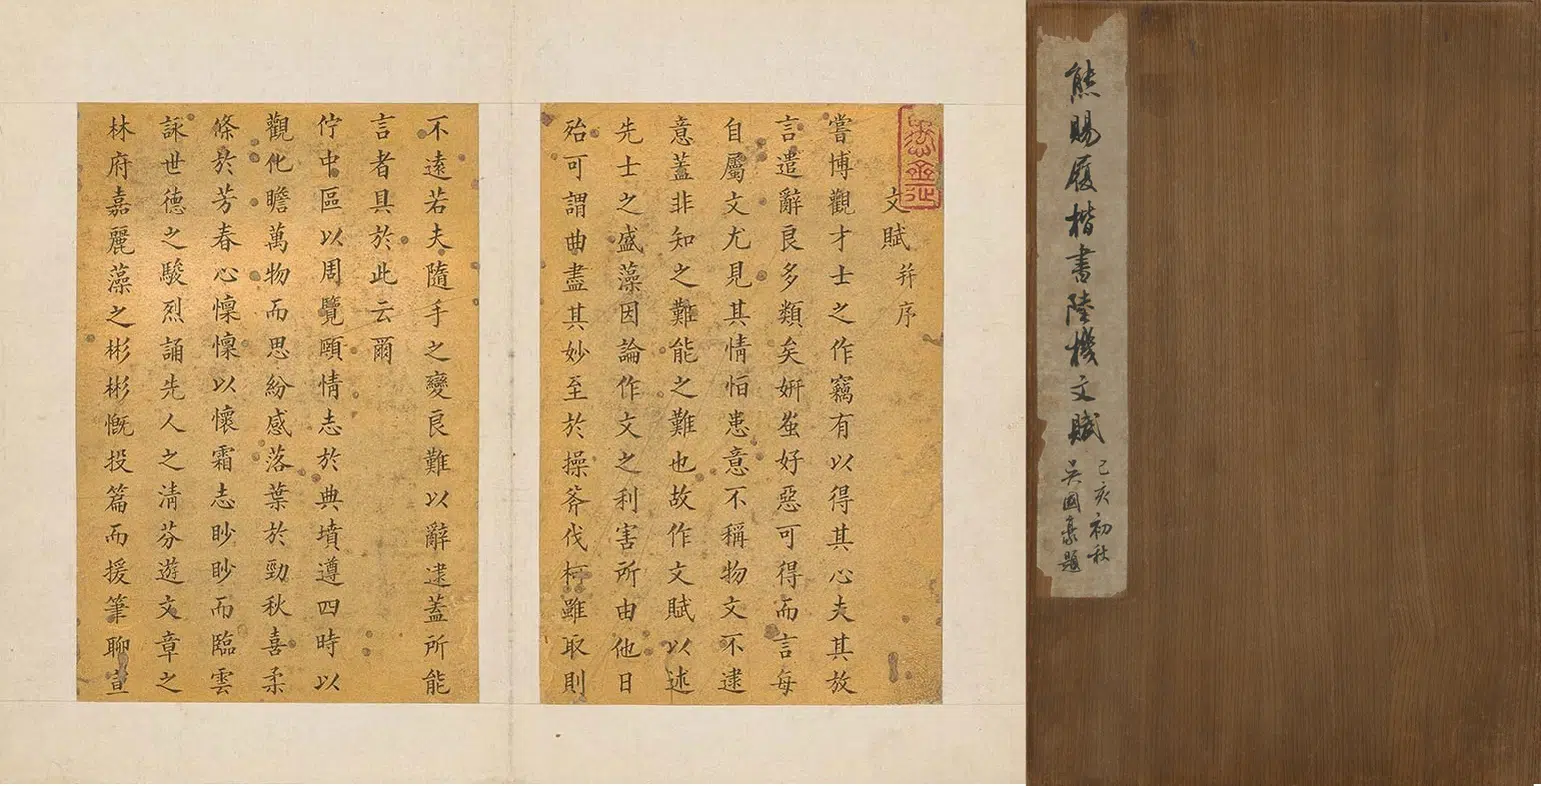 熊賜履楷書陸機文賦
己亥初秋
吳國豪題
文賦并序
嘗博觀才士之作竊有以得其心夫其放
言遣辭良多類矣妍蚩好惡可得而言每
自屬文尤見其情怕患意不稱物文不逮
意蓋非知之難能之難也故作文賦以述
先士之盛藻因論作文之利害所由他日
殆可謂曲盡其妙至於操斧伐柯雖取則
不遠若夫隨手之變良難以辭逮蓋所能
言者具於此云爾
佇中區以周覽頤情志於典墳遵四時以
觀化瞻萬物而思紛感落葉於勁秋喜柔
條於芳春心懍懍以懷霜志眇眇而臨雲
詠世德之駿烈誦先人之清芬遊文章之
林府嘉麗藻之彬彬慨投篇而援筆聊宣